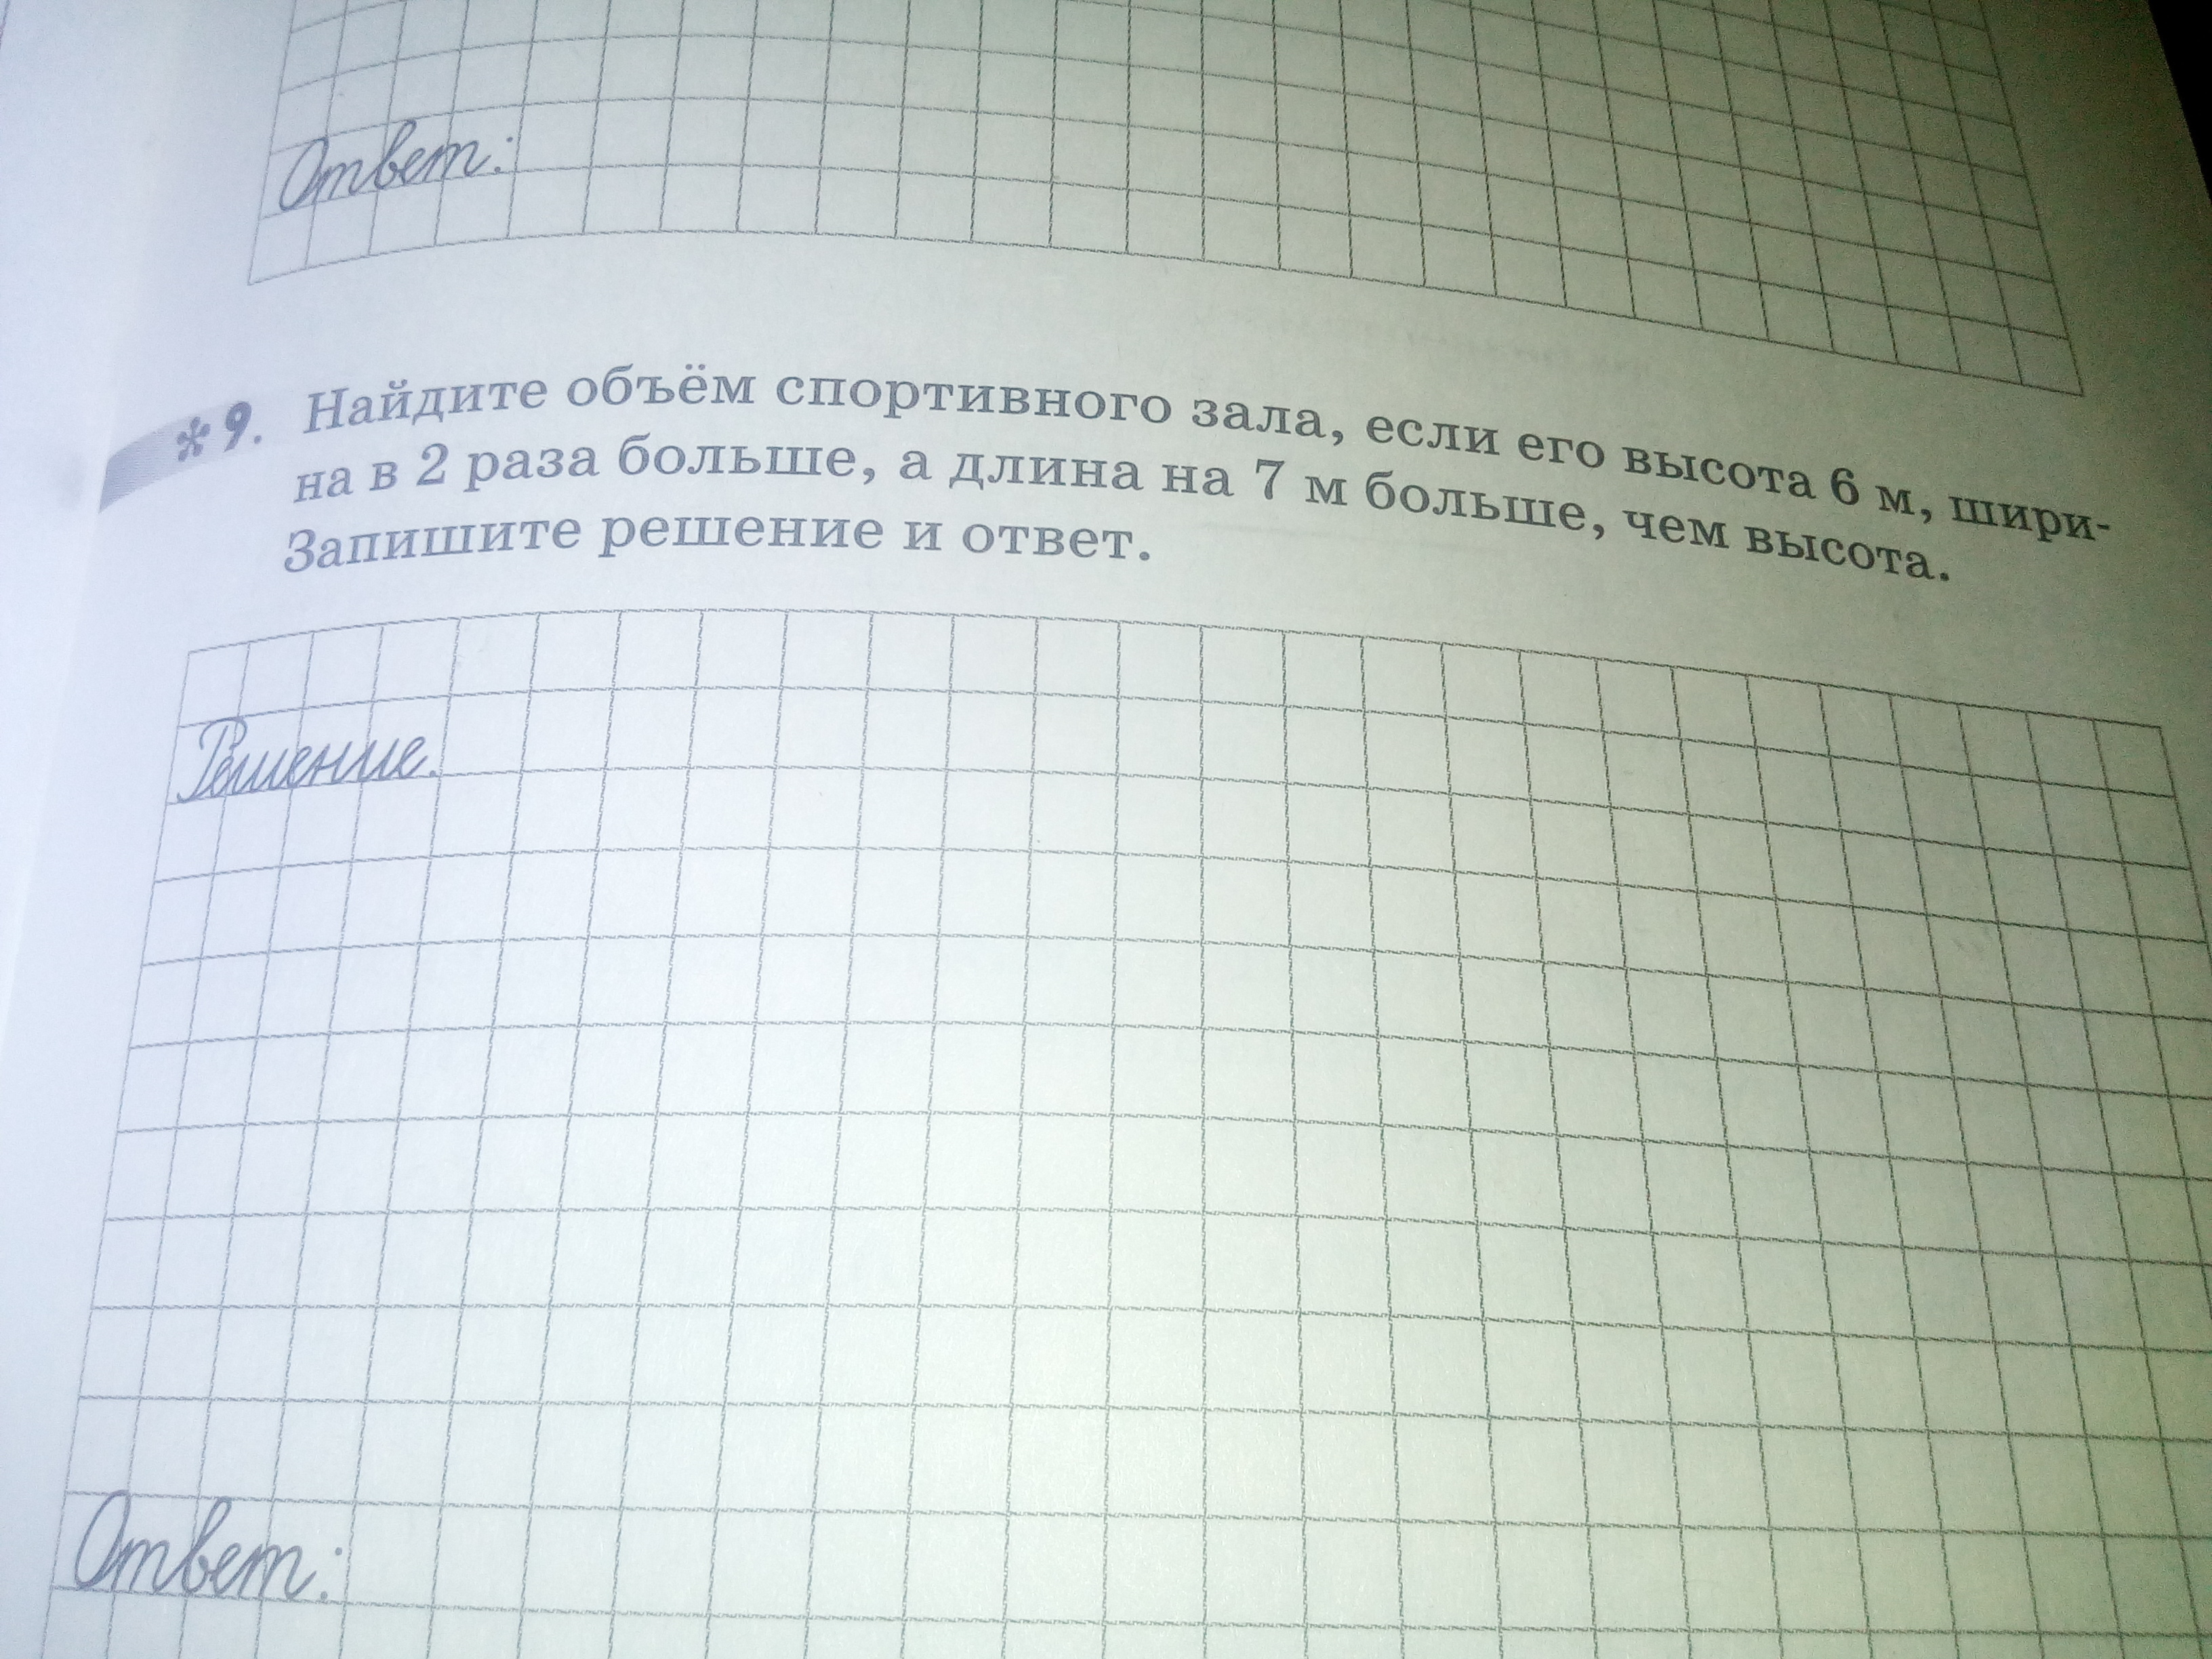 Ответ:
*9. Найдите объём спортивного зала, если его высота 6 м, шири-
на в 2 раза больше, а длина на 7 м больше, чем высота.
Запишите решение и ответ.
Решение.
Ответ: